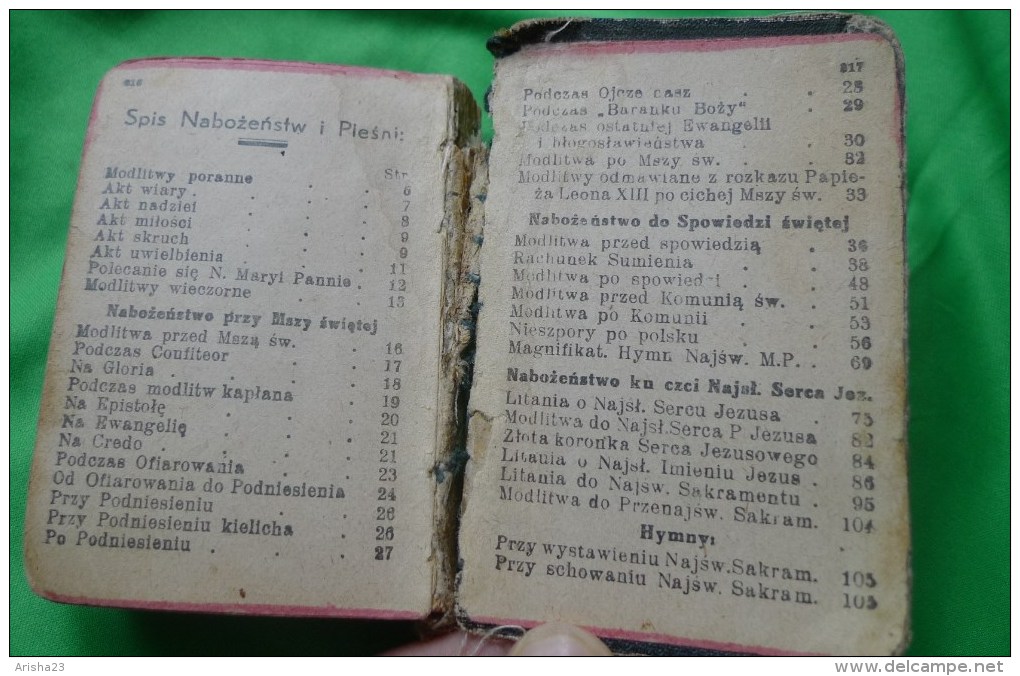 216
Spis Nabożeństw i Pieśni:
Modlitwy poranne Str.
Akt wiary . . . . 6
Akt nadziei . . . . 7
Akt miłości . . . . 8
Akt skruch . . . . 9
Akt uwielbienia . . . 9
Polecanie się N. Maryi Pannie . 11
Modlitwy wieczorne . . 12
13
Nabożeństwo przy Mszy świętej
Modlitwa przed Mszą św. . . 16
Podczas Confiteor . . 17
Na Gloria . . . . 18
Podczas modlitw kapłana . 19
Na Epistołę . . . . 20
Na Ewangelię . . . 21
Na Credo . . . . 21
Podczas Ofiarowania . . 23
Od Ofiarowania do Podniesienia 24
Przy Podniesieniu . . . 26
Przy Podniesieniu kielicha . 26
Po Podniesieniu . . . 27
217
Podczas Ojcze nasz . . 28
Podczas „Baranku Boży" . 29
Podczas ostatniej Ewangelii
i błogosławieństwa . . 30
Modlitwa po Mszy św. . . 32
Modlitwy odmawiane z rozkazu Papie-
ża Leona XIII po cichej Mszy św. 33
Nabożeństwo do Spowiedzi świętej
Modlitwa przed spowiedzią . 36
Rachunek Sumienia . . 38
Modlitwa po spowiedzi . . 48
Modlitwa przed Komunią św. . 51
Modlitwa po Komunii . . 53
Nieszpory po polsku . . 56
Magnifikat. Hymn Najśw. M.P. . 69
Nabożeństwo ku czci Najsł. Serca Jez.
Litania o Najsł. Sercu Jezusa . 75
Modlitwa do Najsł. Serca P Jezusa 82
Złota koronka Serca Jezusowego 84
Litania o Najsł. Imieniu Jezus . 86
Litania do Najśw. Sakramentu . 95
Modlitwa do Przenajśw. Sakram. 104
Hymny:
Przy wystawieniu Najśw.Sakram. 105
Przy schowaniu Najśw. Sakram. 105
Arisha23
www.delcampe.net